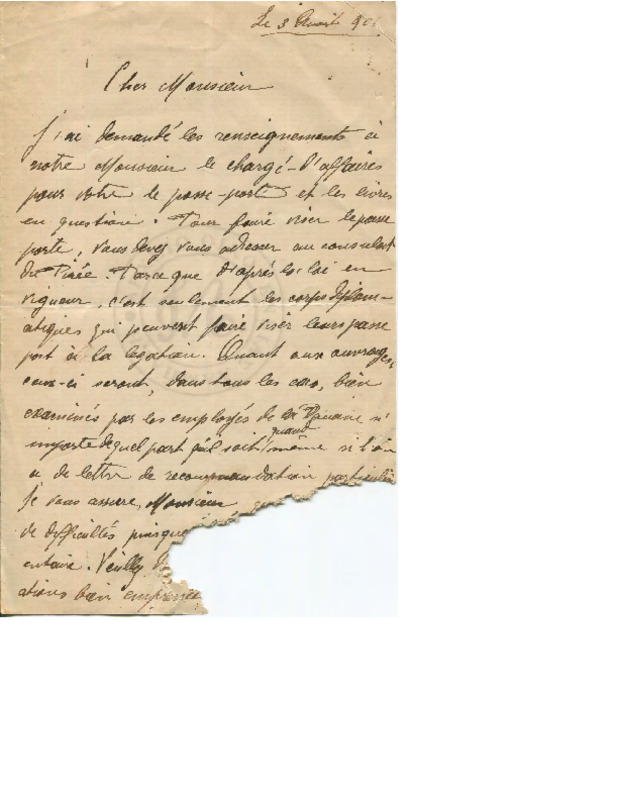 Le 3 Août 90
Cher Monsieur
J'ai demandé les renseignements à
notre Monsieur le chargé-d'affaires
pour votre le passe-port et les livres
en question. Pour faire viser le passe
porte, vous devez vous adresser au consulat
du Pirée. Parce que d'après la loi en
vigueur, c'est seulement les corps diplom-
atiques qui peuvent faire viser leurs passe
port à la legation. Quant aux ouvrages,
ceux-ci seront, dans tous les cas, bien
examinés par les employés de la Douane n'
importe de quel part qu'il soit, même quand si l'on
a de lettre de recommandation particulièr
Je vous assure, Monsieur
de difficultés puisque
entaire. Veuillez
ations bien empressée